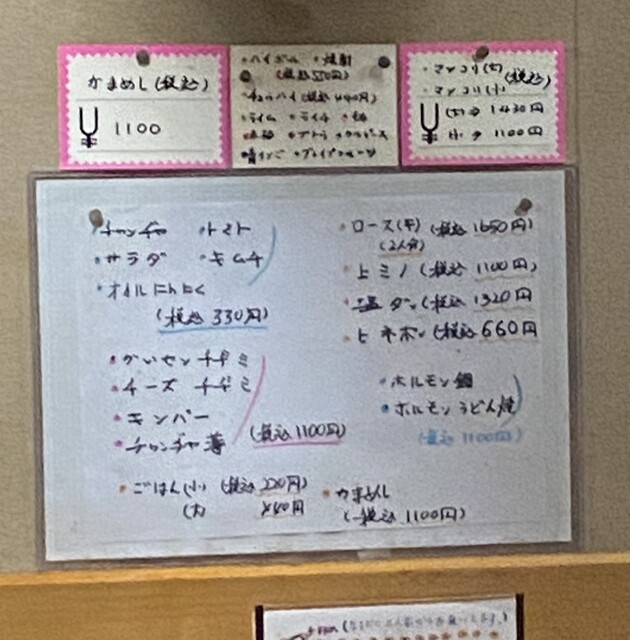 かまめし(税込)
¥ 1100
・ハイボール ・焼酎
(税込 550円)
・チューハイ(税込 440円)
・ライム ・ライチ
・マッコリ(大)(税込)
・マッコリ(小)
¥ (大)⇒ 1430円
小 ⇒ 1100円
・チャンヂャ ・トマト
・サラダ ・キムチ
・オイルにんにく
(税込 330円)
・かいセンチヂミ
・チーズ チヂミ
・キンパー
・チャンヂャ (税込 1100円)
・ごはん(小) (税込 220円)
(大) 440円
・ロース(牛) (税込 1650円)
(2人分)
・上ミノ (税込 1100円)
タン (税込 1320円)
(税込 660円
・ホルモン鍋
・ホルモンうどん焼
(税込 1100円)
・かまめし
(税込 1100円)